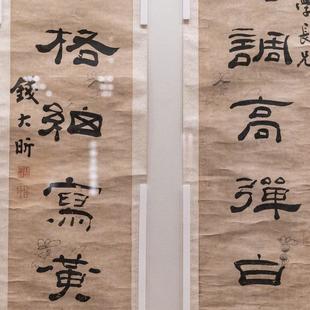 學長兄
調高彈白
格細寫黃
錢大昕